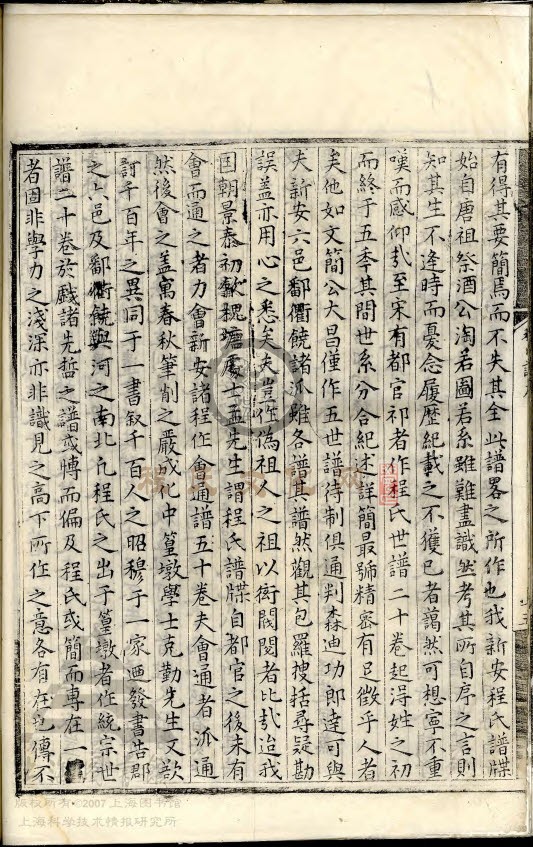 有得其要簡焉而不失其全此譜畧之所作也我新安程氏譜牒
始自唐祖祭酒公淘若圖若系雖難盡識然考其所自序之言則
知其生不逢時而憂念履歷紀載之不獲已者藹然可想寧不重
嘆而感仰哉至宋有都官祁者作程氏世譜二十卷起得姓之初
而終于五季其間世系分合紀述詳簡最號精密有足徵乎人者
矣他如文簡公大昌僅作五世譜待制俱通判森迪功郎達可與
夫新安六邑鄱衢饒諸派雖各譜其譜然觀其包羅搜括尋疑勘
誤盖亦用心之悉矣夫豈作偽祖人之祖以衒閥閱者比哉迨我
国朝景泰初歙槐塘處士孟先生謂程氏譜牒自都官之後未有
會而通之者力會新安諸程作會通譜五十卷夫會通者派通
然後會之盖寓春秋筆削之嚴成化中篁墩學士克勤先生又欲
訂千百年之異同于一書叙千百人之昭穆于一家迺發書告郡
之六邑及鄱衢饒與河之南北凢程氏之出于篁墩者作統宗世
譜二十卷於戲諸先哲之譜或博而偏及程氏或簡而專在一
者固非學力之淺深亦非識見之高下所作之意各有在也傳不
版权所有©2007 上海图书馆
上海科学技术情报研究所